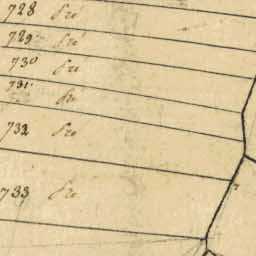 728 Pré
729 Pré
730 Pré
731 Pré
732 Pré
733 Pré